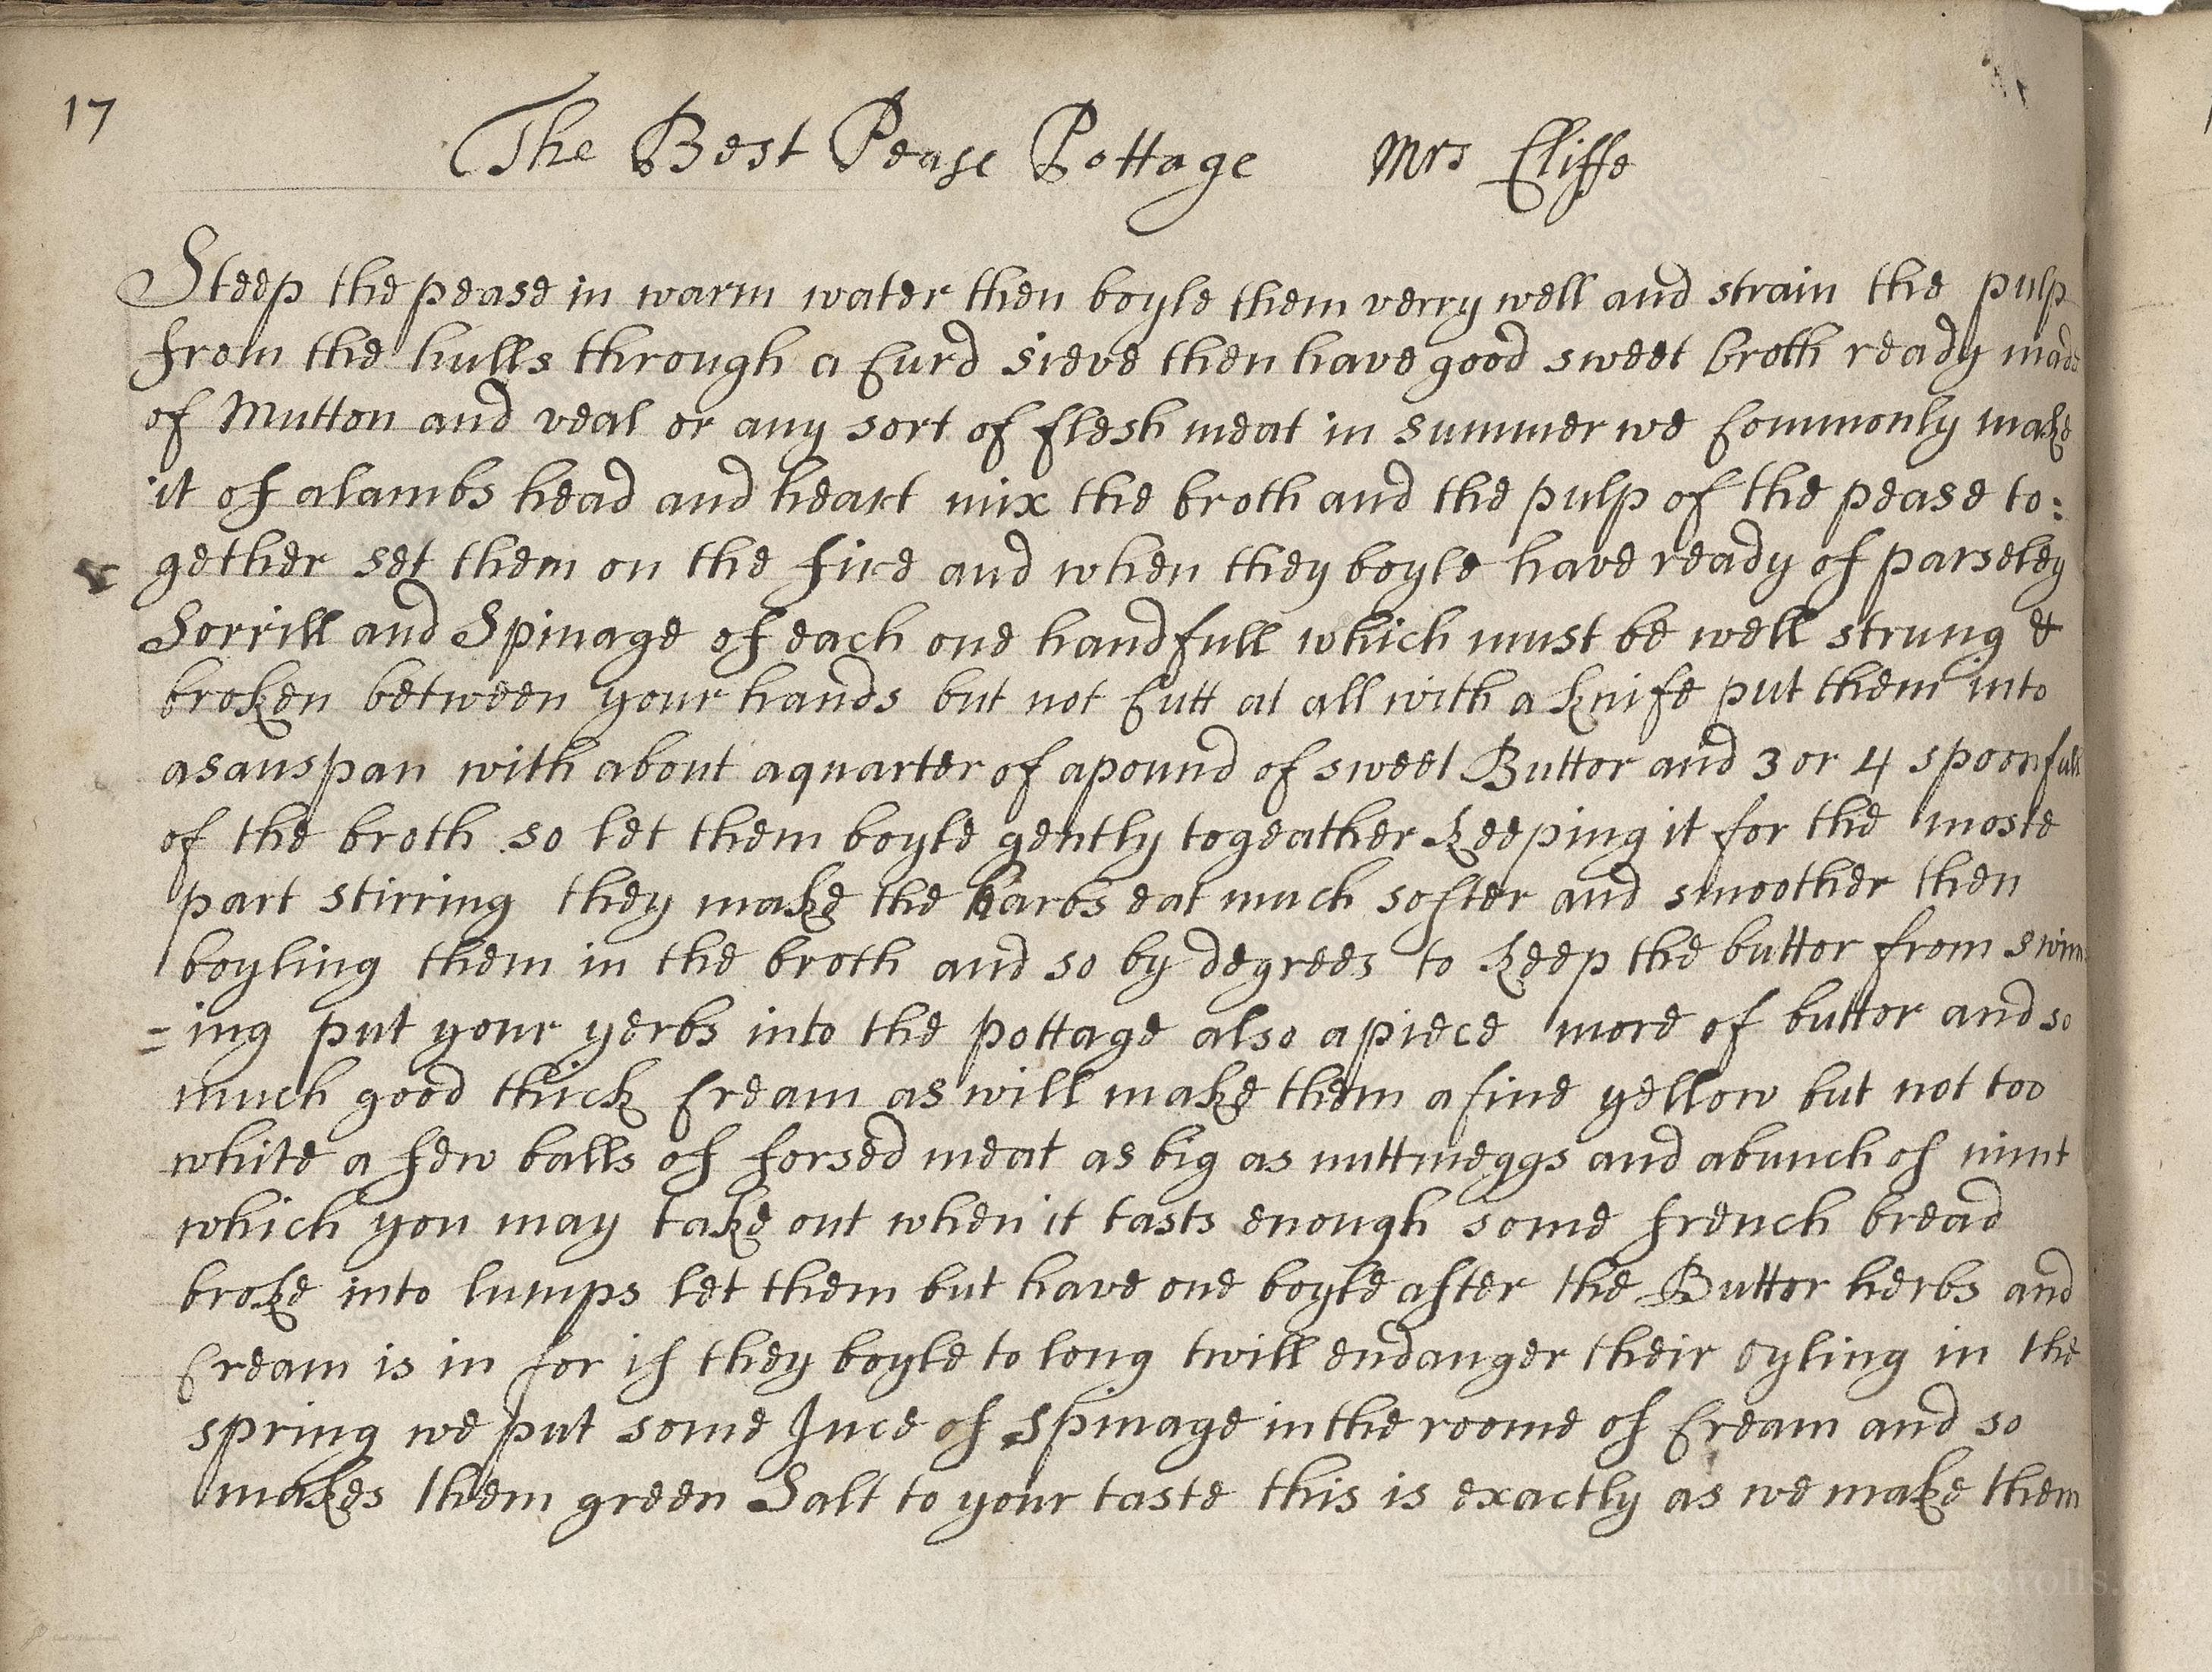 17
The Best Pease Pottage Mrs Cliffe
Steep the pease in warm water then boyle them verry well and strain the pulp
from the hulls through a Curd sieve then have good sweet broth ready made
of Mutton and veal or any sort of flesh meat in summer we Commonly make
it of alambs head and heart mix the broth and the pulp of the pease to:
gether set them on the fire and when they boyle have ready of parseley
Sorrill and Spinage of each one handfull which must be well strung &
broken between your hands but not Cutt at all with a knife put them into
asauspan with about aquarter of apound of sweet Buttor and 3 or 4 spoonfull
of the broth so let them boyle gently togeather keeping it for the moste
part stirring they make the harbs eat much softer and smoother then
boyling them in the broth and so by degrees to keep the buttor from swim
=ing put your yerbs into the pottage also apiece more of buttor and so
much good thick Cream as will make them a fine yellow but not too
white a few balls of forsed meat as big as nuttmeggs and abunch of mint
which you may take out when it tasts enough some french bread
broke into lumps let them but have one boyle after the Buttor herbs and
Cream is in for if they boyle to long twill endanger their oyling in the
spring we put some Juce of Spinage in the roome of Cream and so
makes them green Salt to your taste this is exactly as we make them